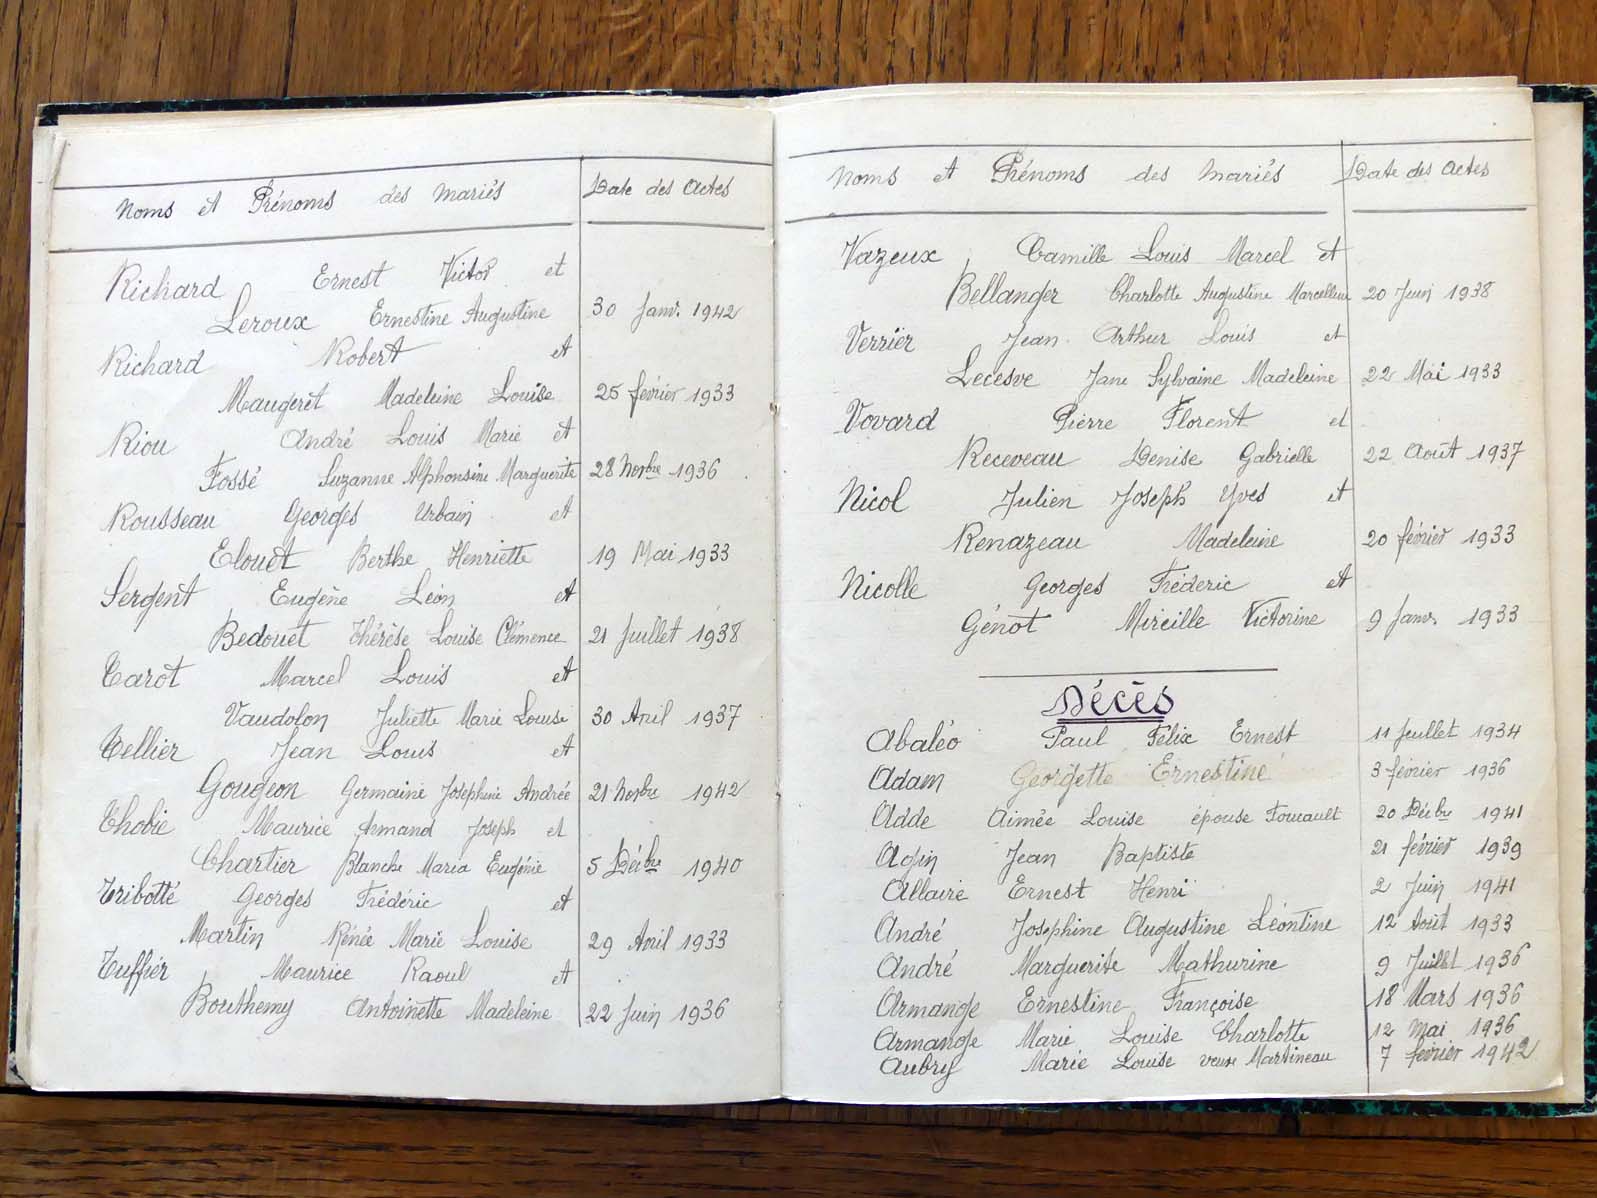 Noms et Prénoms des mariés Date des actes
Richard Ernest Victor et
Leroux Ernestine Augustine 30 Janv. 1942
Richard Robert et
Maugeret Madeleine Louise 25 février 1933
Riou André Louis Marie et
Fossé Suzanne Alphonsine Marguerite 28 Novbre 1936
Rousseau Georges Urbain et
Elouet Berthe Henriette 19 Mai 1933
Sergent Eugène Léon et
Bedouet Thérèse Louise Clémence 21 Juillet 1938
Tarot Marcel Louis et
Vaudolon Juliette Marie Louise 30 Avril 1937
Tellier Jean Louis et
Gougeon Germaine Joséphine Andrée 21 Novbre 1942
Thobie Maurice Armand Joseph et
Chartier Blanche Maria Eugénie 5 Décbre 1940
Tribotté Georges Frédéric et
Martin Rénée Marie Louise 29 Avril 1933
Tuffier Maurice Raoul et
Bouthemy Antoinette Madeleine 22 Juin 1936
Noms et Prénoms des mariés Date des actes
Vazeux Camille Louis Marcel et
Bellanger Charlotte Augustine Marcelline 20 Juin 1938
Verrier Jean Arthur Louis et
Lecesve Jane Sylvaine Madeleine 22 Mai 1933
Vovard Pierre Florent et
Receveau Denise Gabrielle 22 Août 1937
Nicol Julien Joseph Yves et
Renazeau Madeleine 20 février 1933
Nicolle Georges Fréderic et
Génot Mireille Victorine 9 Janv. 1933
Décès
Abaléo Paul Félix Ernest 11 Juillet 1934
Adam Georgette Ernestine 3 février 1936
Adde Aimée Louise épouse Foucault 20 Décbre 1941
Agin Jean Baptiste 21 février 1939
Allaire Ernest Henri 2 Juin 1941
André Joséphine Augustine Léontine 12 Août 1933
André Marguerite Mathurine 9 Juillet 1936
Armange Ernestine Françoise 18 Mars 1936
Armange Marie Louise Charlotte 12 Mai 1936
Aubry Marie Louise veuve Martineau 7 février 1942